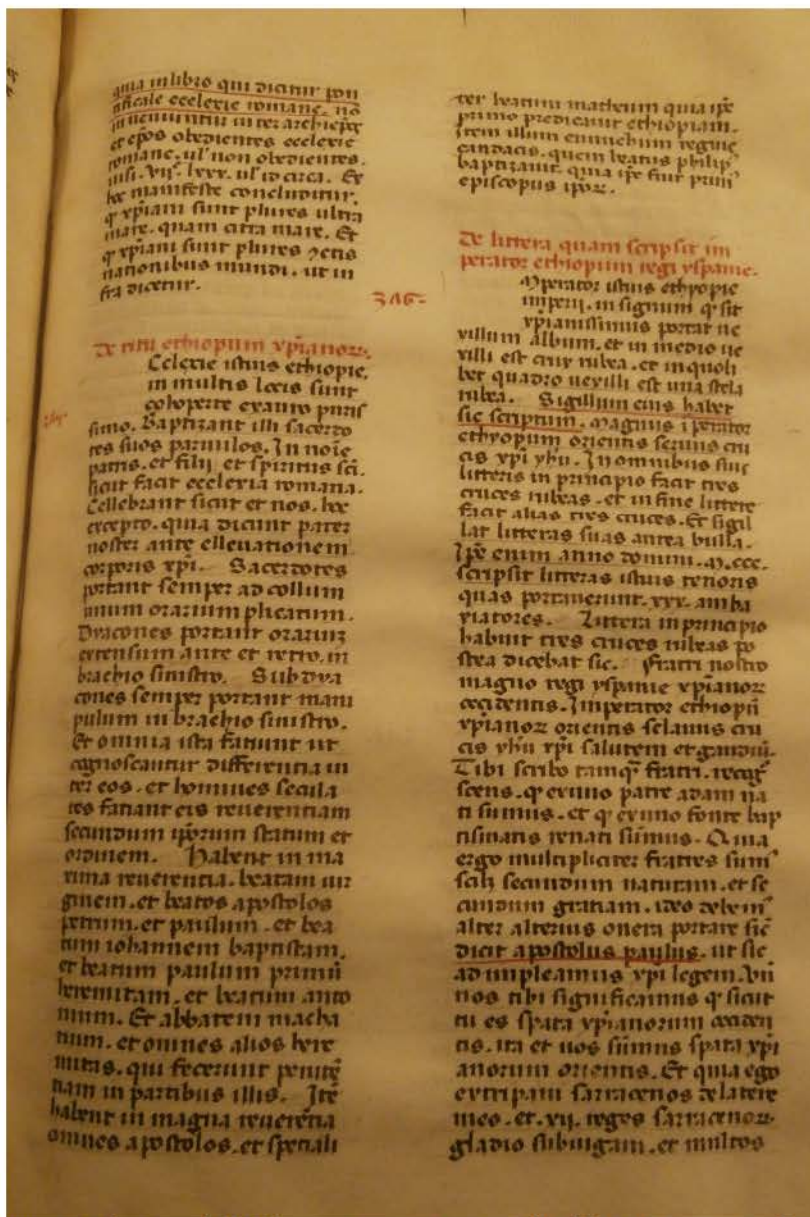 quia in libro qui dicitur pon
tificale ecclexie romane. nō
inueniuntur inter archiepōs
et epōs obedientes ecclexie
romane. ul' non obedientes.
nisi. vijᶜ. lxxx. ul' id circa. Et
hec manifeste concluditur.
q xp̄iani sunt plures ultra
mare. quam citra mare. Et
q xp̄iani sunt plures ꝯctis
nationibus mundi. ut in
fra dicetur.
De ritu ethiopum xp̄ianoꝝ.
Celexie istius ethiopie.
in multis locis sunt
cohoperte ex auro puris
simo. Baptizant illi sacerdo
tes suos paruulos. In noīe
patris. et filij et spiritus sc̄i.
sicut facit ecclexia romana.
Cellebrant sicut et nos. hoc
excepto. quia dicunt pater
noster ante elleuationem
corporis xp̄i. Sacerdotes
portant semper ad collum
unum orarium plicatum.
Dyacones portant orariuꝫ
extensum ante et retro. in
brachio sinistro. Subdya
cones semper portant mani
pulum in brachio sinistro.
Et omnia ista faciunt ut
cognoscantur differentia in
ter eos. et homines secula
res faciant eis reuerentiam
secundum ip̄orum statum et
ordinem. Habent in ma
xima reuerentia. beatam uir
ginem. et beatos apostolos
petrum. et paulum. et bea
tum iohannem baptistam.
et beatum paulum primū
heremitam. et beatum anto
nium. Et abbatem macha
rium. et omnes alios here
mitas. qui fecerunt penitē
tiam in partibus illis. Itē
habent in magna reuerētia
omnes apostolos. et speciali
ter beatum matheum quia ip̄e
primo predicauit ethiopiam.
Item illum eunuchum regine
candacis. quem beatus philip'
baptizauit. quia ip̄e fuit prim'
episcopus ip̄oꝝ.
De littera quam scripsit im
perator ethiopum regi yspanie.
Mperator istius ethyopie
imperij. in signum q sit
xp̄ianissimus portat ue
xillum album. et in medio ue
xilli est crux rubea. et in quoli
bet quadro uexilli est una stela
rubea. Sigillum eius habet
sic scriptum. Magnus īperator
ethyopum orientis seruus cru
cis xp̄i yhu. In omnibus suis
litteris in principio facit tres
cruces rubeas. et in fine littere
facit alias tres cruces. Et sigil
lat litteras suas aurea bulla.
Ip̄e enim anno domini. M. ccc.
scripsit litteras istius tenoris
quas portauerunt. xxx. amba
xiatores. Littera in principio
habuit tres cruces rubeas po
stea dicebat sic. Fratri nostro
magno regi yspanie xp̄ianoꝝ
occidentis. Imperator ethiopū
xp̄ianoꝝ orientis sclauus cru
cis yhu xp̄i salutem et gaudiū.
Tibi scribo tamq̄ fratri. recog̅
scens. q ex uno patre adam na
ti sumus. et q ex uno fonte bap
tismatis renati sumus. Quia
ergo multipliciter fratres sum'
scilꝫ secundum naturam. et se
cundum gratiam. ideo debem'
alter alterius onera portare sic̄
dicit apostolus paulus. ut sic
ad impleamus xp̄i legem. Vn̄
nos tibi significamus q sicut
tu es spata xp̄ianorum occiden
tis. ita et nos sumus spata xp̄i
anorum orientis. Et quia ego
extirpaui sarracenos de latere
meo. et. vij. reges sarracenoꝝ
gladio subiugaui. et multos